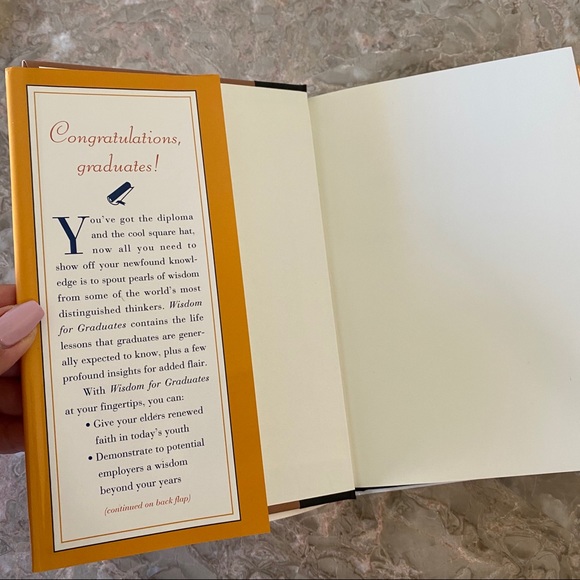 Congratulations,
graduates!
You've got the diploma
and the cool square hat,
now all you need to
show off your newfound knowl-
edge is to spout pearls of wisdom
from some of the world's most
distinguished thinkers. Wisdom
for Graduates contains the life
lessons that graduates are gener-
ally expected to know, plus a few
profound insights for added flair.
With Wisdom for Graduates
at your fingertips, you can:
• Give your elders renewed
faith in today's youth
• Demonstrate to potential
employers a wisdom
beyond your years
(continued on back flap)